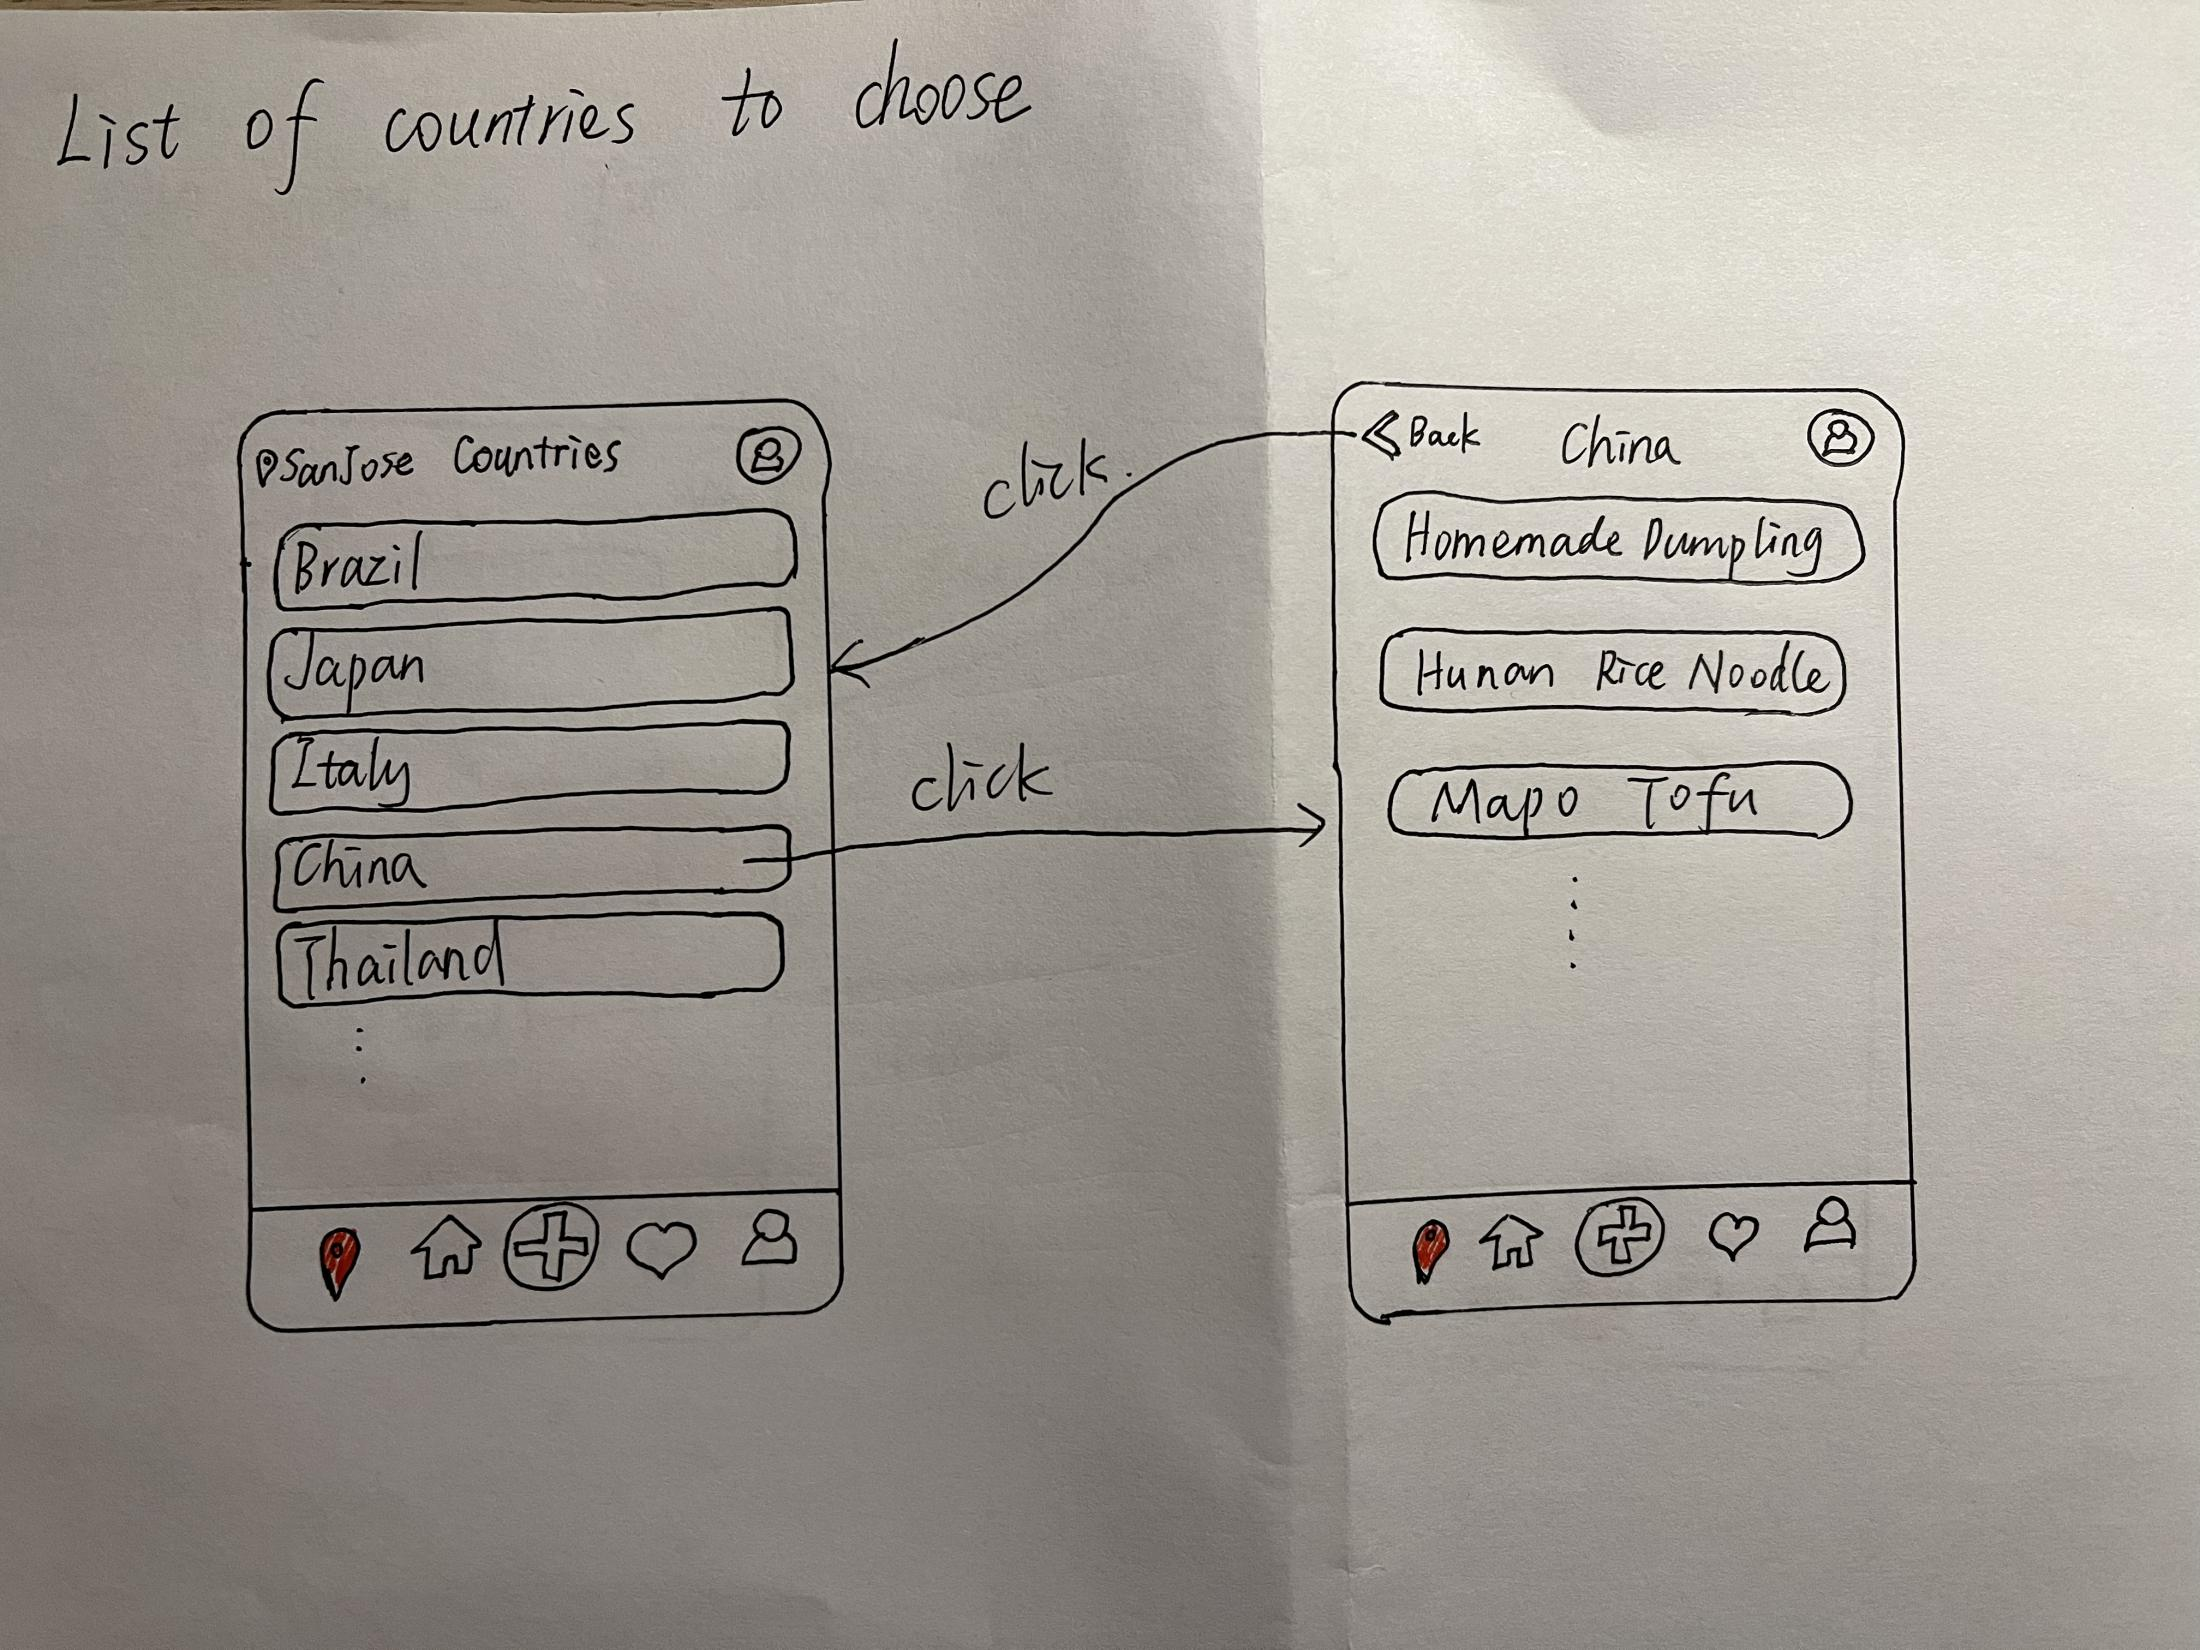 List of countries to choose
SanJose Countries
Brazil
Japan
Italy
China
Thailand
click.
click
Back China
Homemade Dumpling
Hunan Rice Noodle
Mapo Tofu